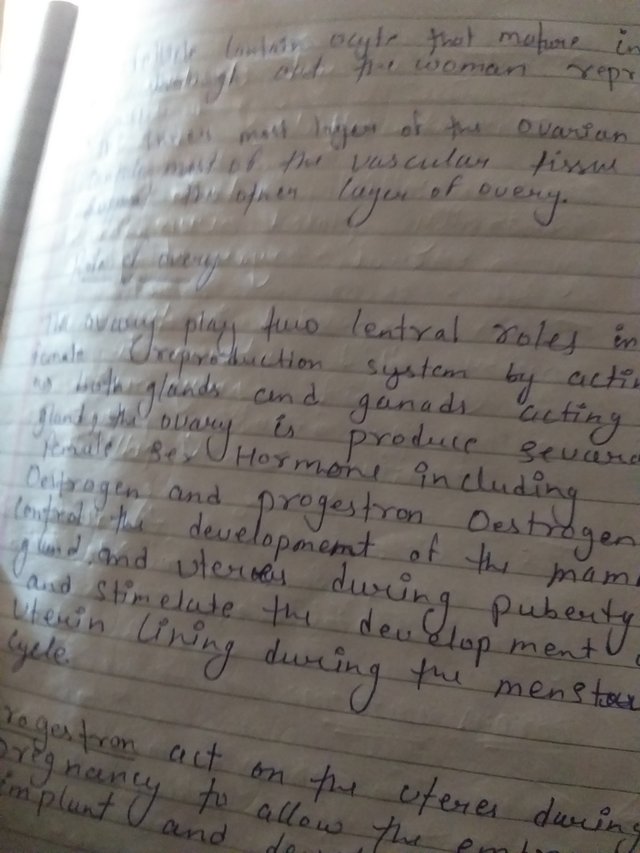 contain ocyte that mature in
out the woman repr
most layer of the ovarian
most of the vascular tissue
the other layer of overy.
of overy
The ovary play two lentral roles in
female reproduction system by actin
both glands and ganads acting
gland, the ovary is produce sevara
female sex Hormone including
Oestrogen and progestron Oestrogen
control the development of the mam
gland, and uterus during puberty
and stimelate the develop ment
uterin lining during the menstour
cycle.
rogestron act on the uteres during
pregnancy to allow the emb
implant and de